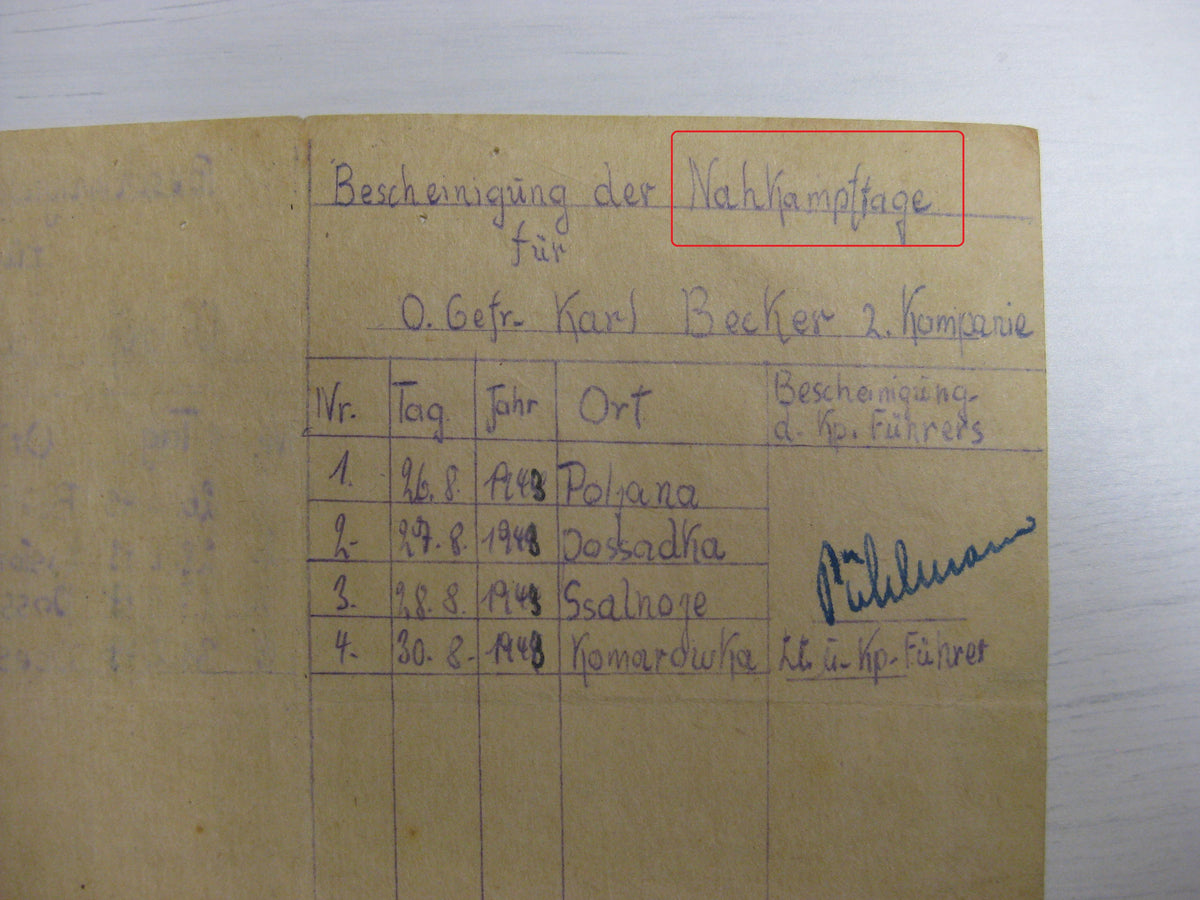 Bescheinigung der NahKampftage
für
O. Gefr. Karl Becker 2. Kompanie
Nr. Tag. Jahr Ort Bescheinigung. d. Kp. Führers
1. 26. 8. 1943 Poljana
2. 27. 8. 1943 Dossadka
3. 28. 8. 1943 Ssalnoje
4. 30. 8. 1943 Komarowka
Pühlmann
Lt. u. Kp. Führer